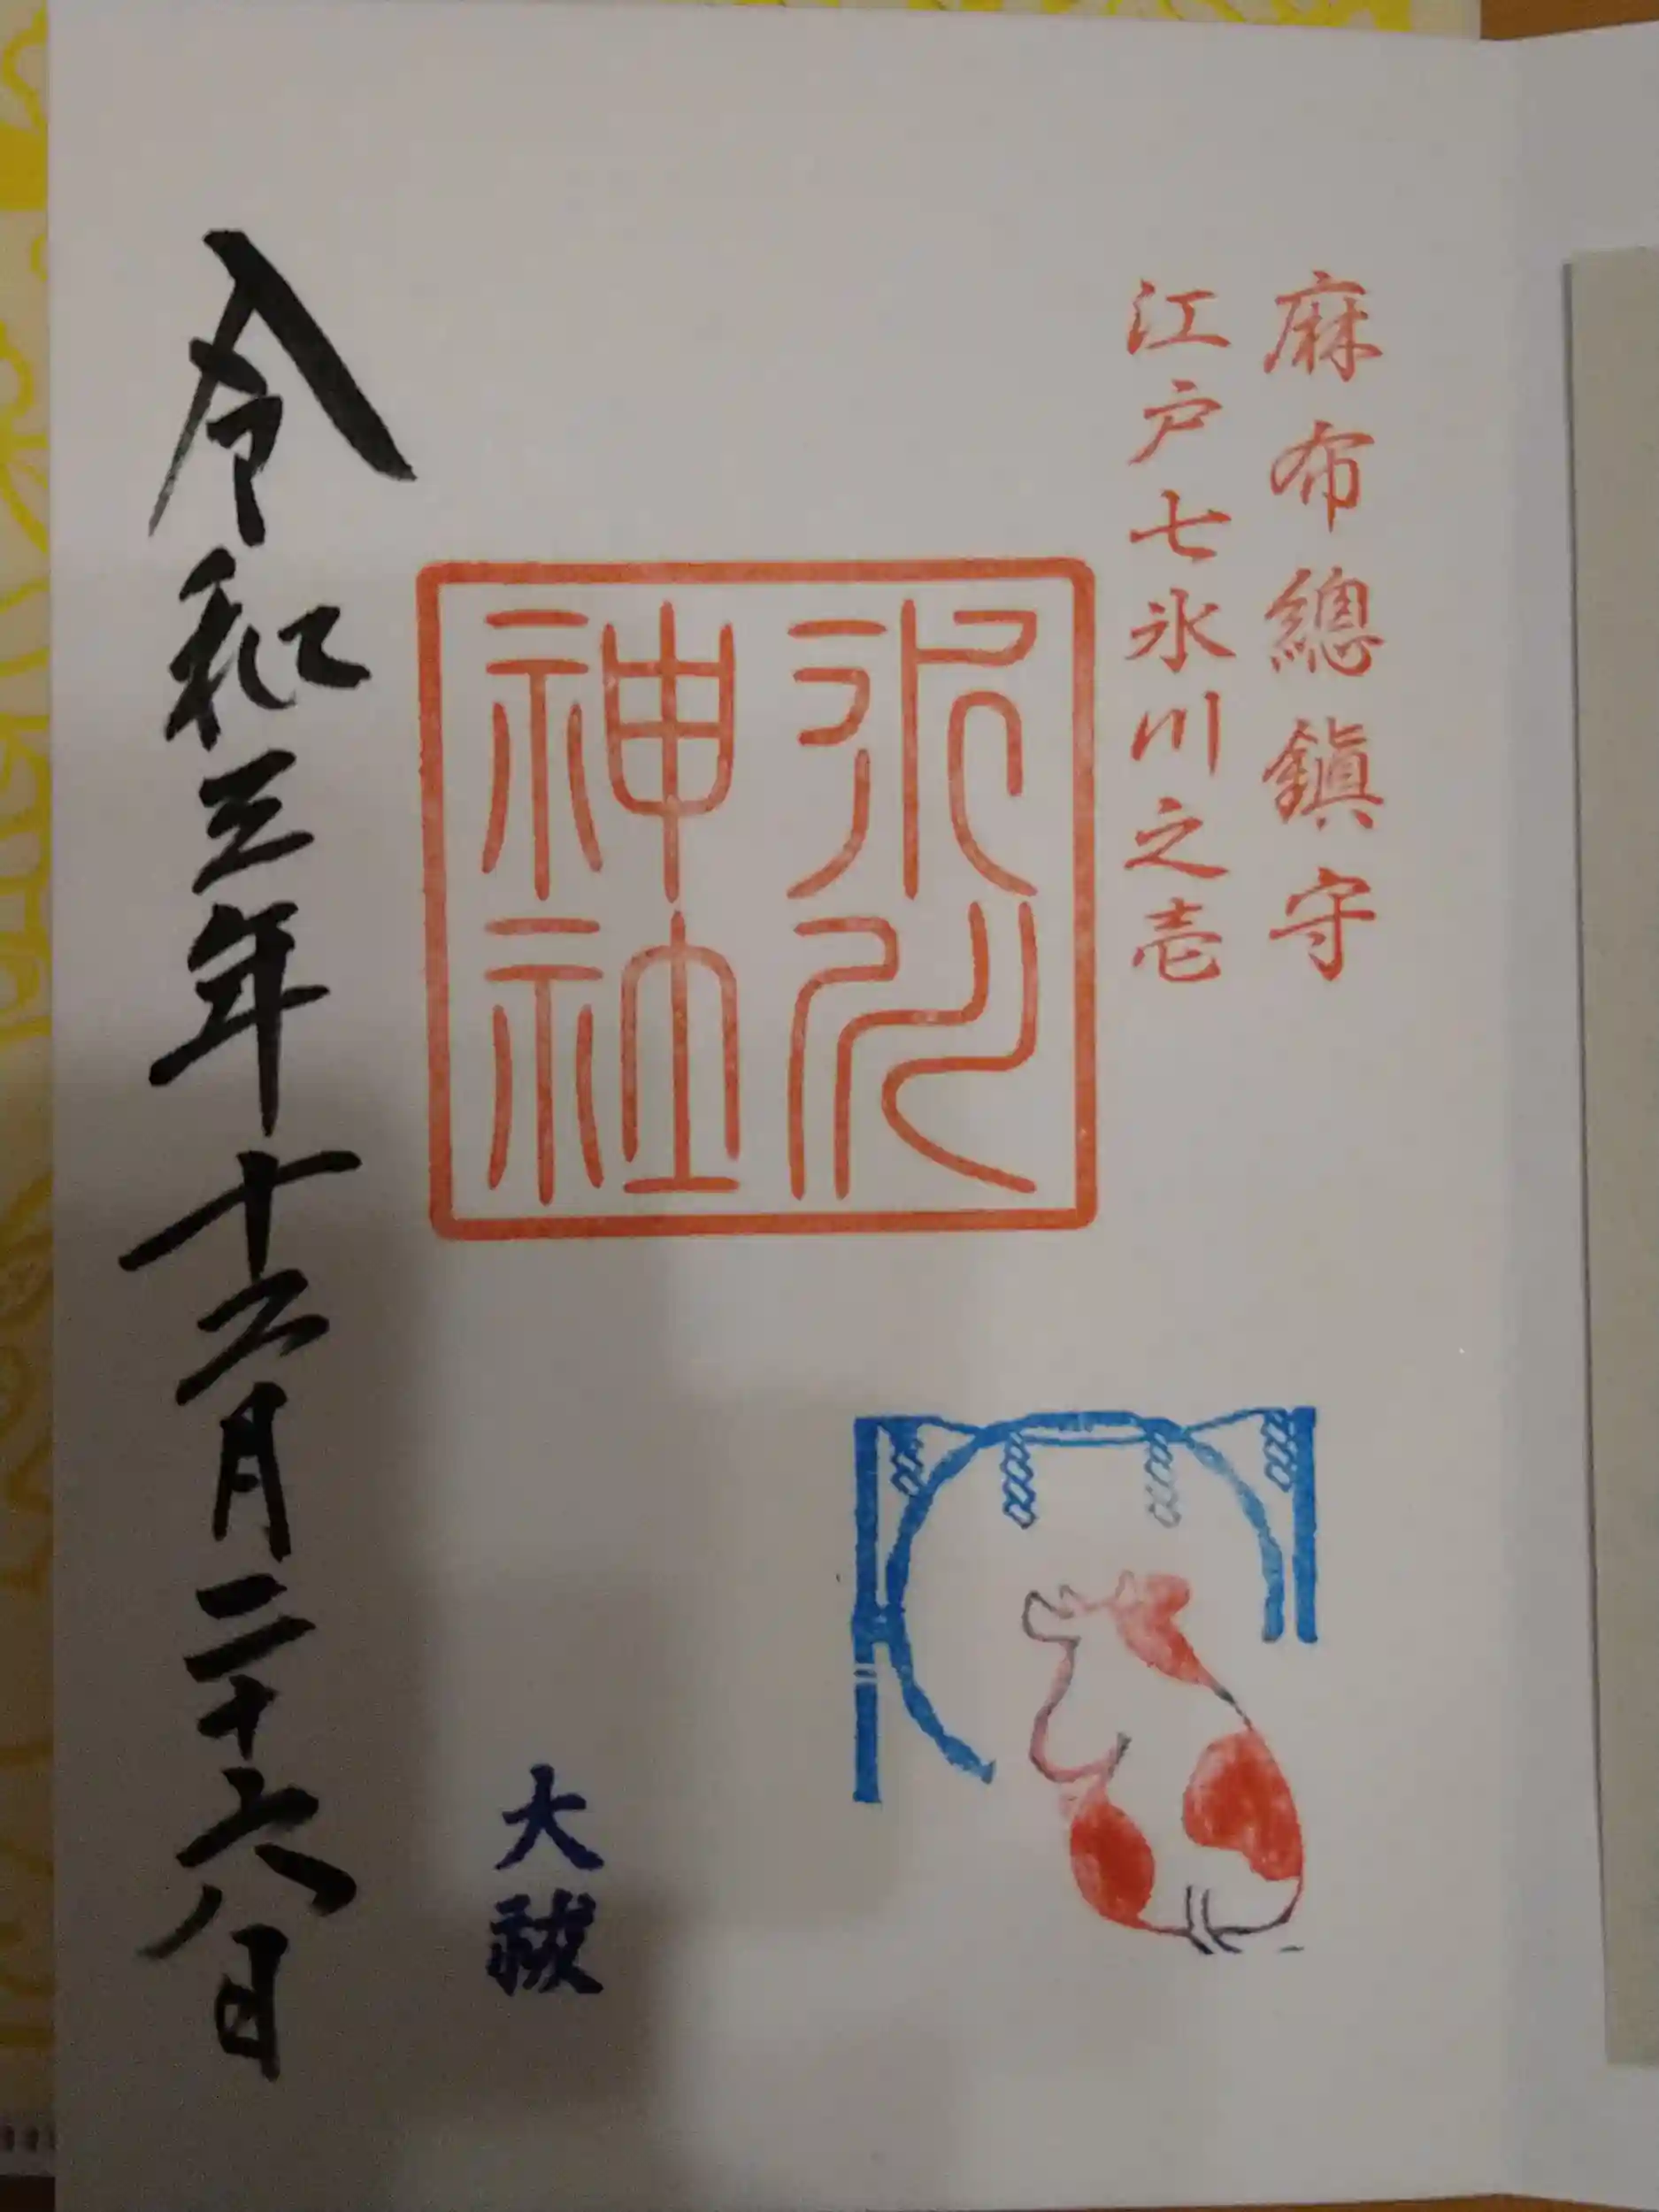 麻布總鎭守
江戸七氷川之壱
氷川
神社
大祓
令和三年十二月二十六日